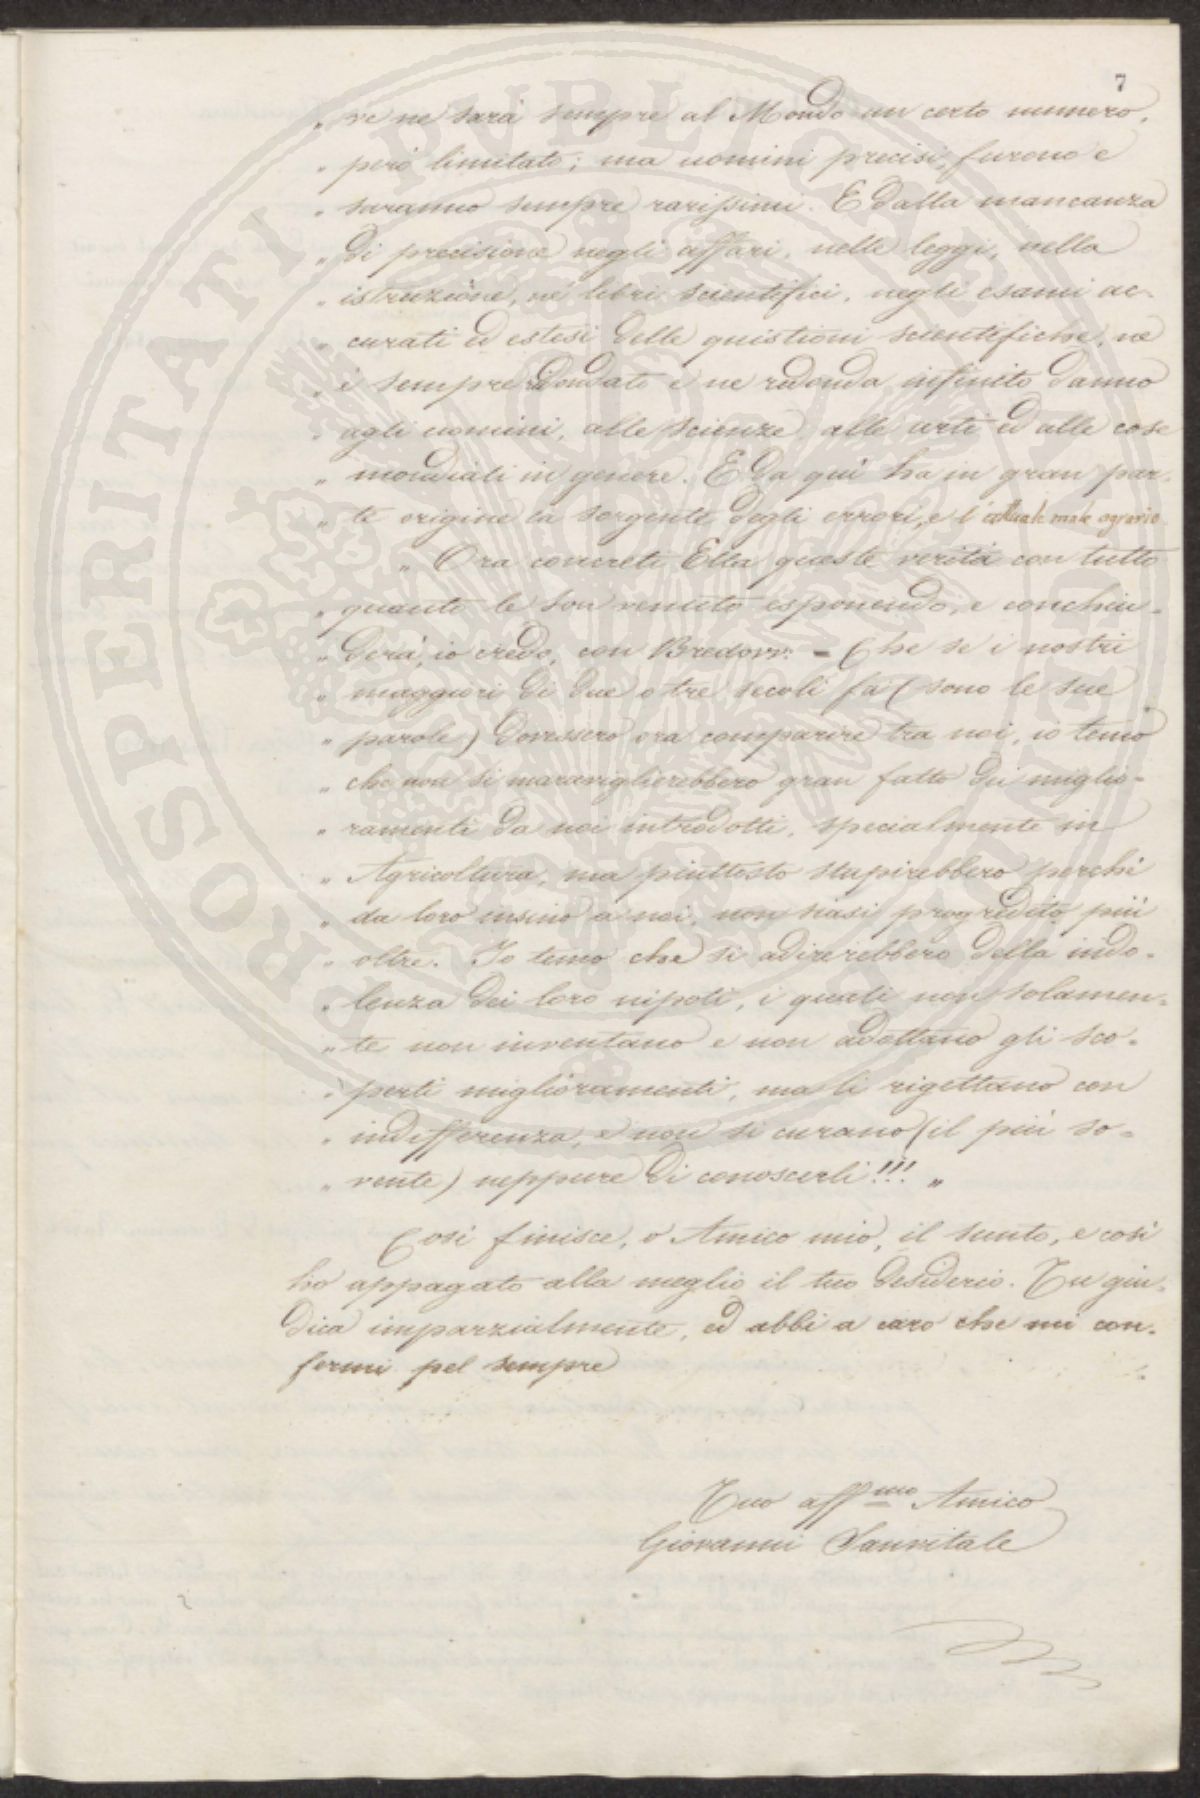 7
„ ve ne sarà sempre al Mondo un certo numero,
„ però limitato; ma uomini precisi, furono e
„ saranno sempre rarissimi. E dalla mancanza
„ di precisione negli affari, nelle leggi, nella
„ istruzione, ne' libri scientifici, negli esami ac-
„ curati ed estesi delle quistioni scientifiche, ne
„ è sempre ridondato e ne ridonda infinito danno
„ agli uomini, alle scienze, alle arti ed alle cose
„ mondiali in genere. E da quì ha in gran par-
„ te origine la sorgente degli errori, e l'attuale male agrario.
„ Ora concreti Ella queste verità con tutto
„ quanto le son venuto esponendo, e conchiu-
„ derà, io credo, con Bredow: = Che se i nostri
„ maggiori di due o tre secoli fa (sono le sue
„ parole) dovessero ora comparire tra noi, io temo
„ che non si maraviglierebbero gran fatto dei miglio-
„ ramenti da noi introdotti, specialmente in
„ Agricoltura, ma piuttosto stupirebbero perchè
„ da loro insino a noi, non siasi progredito più
„ oltre. Io temo che si adirerebbero della indo-
„ lenza dei loro nipoti, i quali non solamen-
„ te non inventano e non adottano gli sco-
„ perti miglioramenti, ma li rigettano con
„ indifferenza, e non si curano (il più so-
„ vente) neppure di conoscerli!!! „
Così finisce, o Amico mio, il sunto, e così
ho appagato alla meglio il tuo desiderio. Tu giu-
dica imparzialmente, ed abbi a caro che mi con-
fermi pel sempre
Tuo affmo Amico
Giovanni Sanvitale
PROSPERITATI PUBLICAE